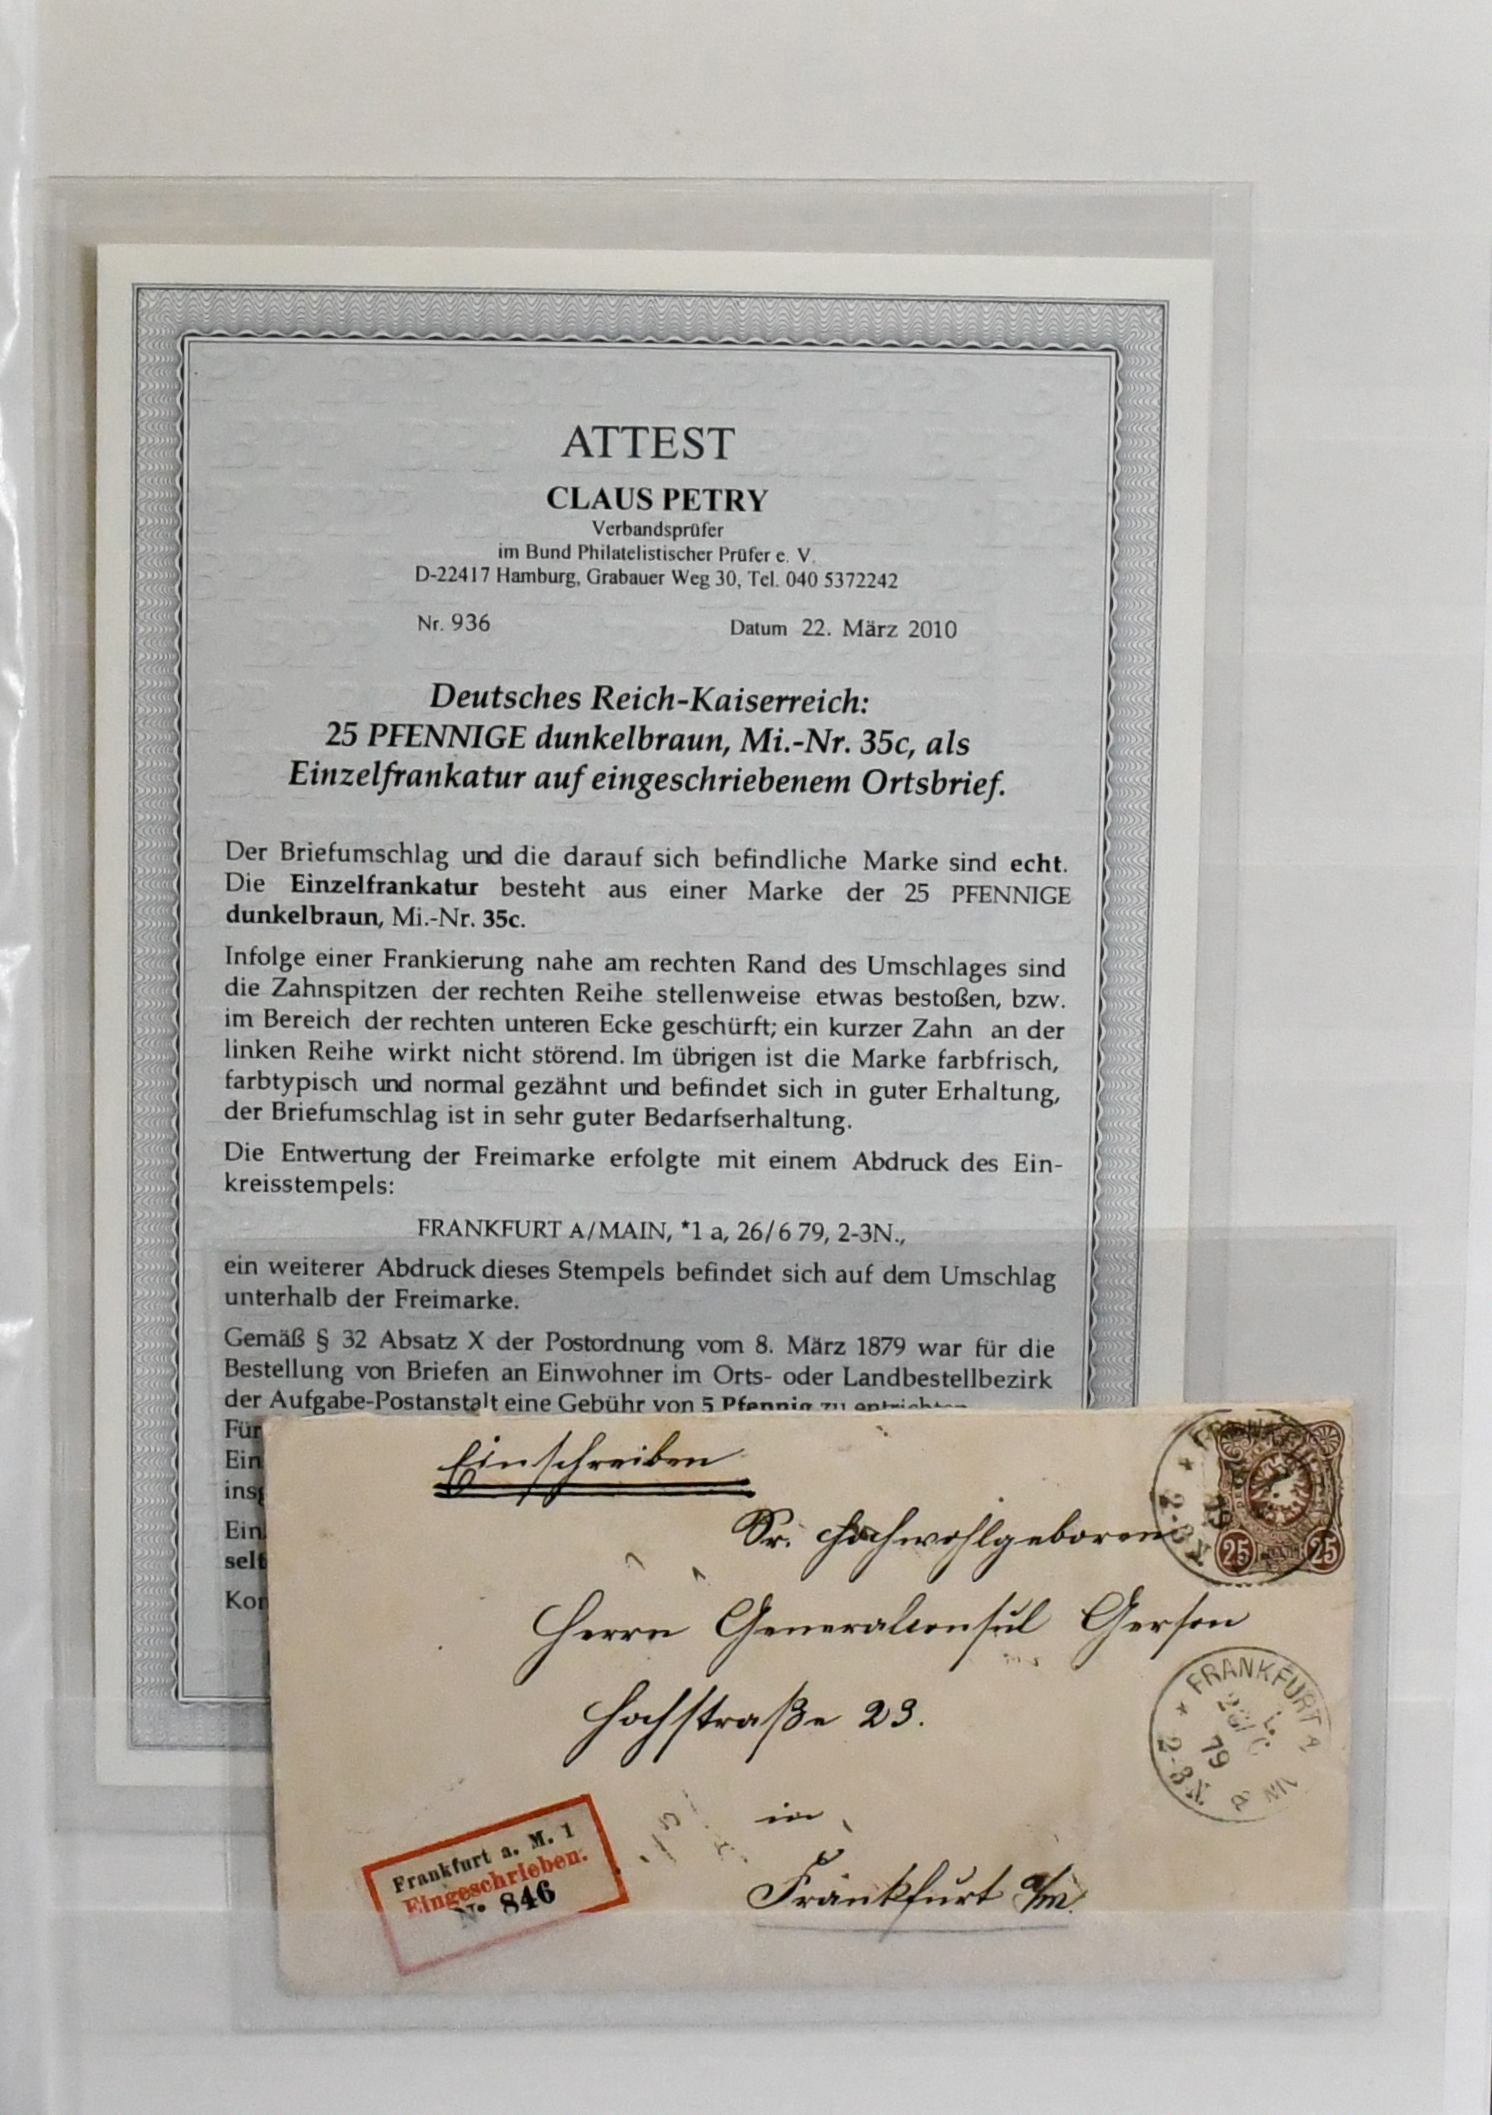 ATTEST
CLAUS PETRY
Verbandsprüfer
im Bund Philatelistischer Prüfer e. V.
D-22417 Hamburg, Grabauer Weg 30, Tel. 040 5372242
Nr. 936 Datum 22. März 2010
Deutsches Reich-Kaiserreich:
25 PFENNIGE dunkelbraun, Mi.-Nr. 35c, als
Einzelfrankatur auf eingeschriebenem Ortsbrief.
Der Briefumschlag und die darauf sich befindliche Marke sind echt.
Die Einzelfrankatur besteht aus einer Marke der 25 PFENNIGE
dunkelbraun, Mi.-Nr. 35c.
Infolge einer Frankierung nahe am rechten Rand des Umschlages sind
die Zahnspitzen der rechten Reihe stellenweise etwas bestoßen, bzw.
im Bereich der rechten unteren Ecke geschürft; ein kurzer Zahn an der
linken Reihe wirkt nicht störend. Im übrigen ist die Marke farbfrisch,
farbtypisch und normal gezähnt und befindet sich in guter Erhaltung,
der Briefumschlag ist in sehr guter Bedarfserhaltung.
Die Entwertung der Freimarke erfolgte mit einem Abdruck des Ein-
kreisstempels:
FRANKFURT A/MAIN, *1 a, 26/6 79, 2-3N.,
ein weiterer Abdruck dieses Stempels befindet sich auf dem Umschlag
unterhalb der Freimarke.
Gemäß § 32 Absatz X der Postordnung vom 8. März 1879 war für die
Bestellung von Briefen an Einwohner im Orts- oder Landbestellbezirk
der Aufgabe-Postanstalt eine Gebühr von 5 Pfennig zu entrichten
Für
Ein
Ein
selt
Einschreiben
Sr. Hochwohlgeboren
Herrn Generalconsul Gerson
Hochstraße 23.
in
Frankfurt a/M.
25 25
* FRANKFURT A
79
2-3N
Frankfurt a. M. 1
Eingeschrieben.
No. 846